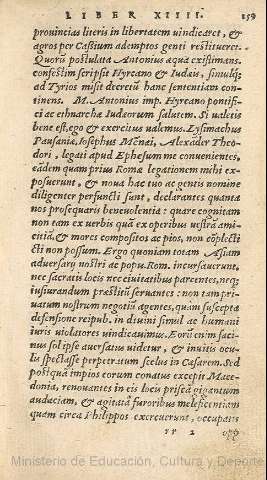 LIBER XIIII. 159
prouincias literis in libertatem uindicaret, &
agros per Cassium ademptos genti restitueret.
Quorū postulata Antonius aqua existimans,
confestim scripsit Hyrcano & Iudæis, simulq;
ad Tyrios misit decretū hanc sententiam con-
tinens. M. Antonius imp. Hyrcano pontifi-
ci ac ethnarchæ Iudæorum salutem. Si ualetis
bene est, ego & exercitus ualemus. Lysimachus
Pausaniæ, Iosephus Mēnai, Alexāder Theo-
dori, legati apud Ephesum me conuenientes,
eādem quam prius Romæ legationem mihi ex-
posuerunt, & noua hac tuo ac gentis nomine
diligenter perfuncti sunt, declarantes quanta
nos prosequaris beneuolentia: quare cognitam
non tam ex uerbis quā ex operibus uestrā ami-
citiā, & mores compositos ac pios, nō cōplecti
cti non possum. Ergo quoniam totam Asiam
aduersarij nostri ac popu. Rom. incursauerunt,
nec sacratis locis nec ciuitatibus parcentes, neq;
iusiurandum præstitū seruantes: non tam pri-
uatum nostrum negotiū agentes, quàm suscepta
defensione reipub. in diuini simul ac humani
iuris uiolatores uindicauimus. Eorū enim faci-
nus sol ipse auersatus uidetur, & inuitis ocu-
lis spectasse perpetratum scelus in Cæsarem. Sed
postquā impios eorum conatus excepit Mace-
donia, renouantes in eis locu priscā gigantum
audaciam, & agitatā furoribus molescentiam
quam circa Philippos exercuerunt, occupatis
Ministerio de Educación, Cultura y Deporte